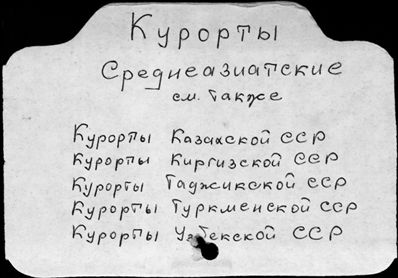 Курорты
Среднеазиатские
см. также
Курорты Казахской ССР
Курорты Киргизской ССР
Курорты Таджикской ССР
Курорты Туркменской ССР
Курорты Узбекской ССР